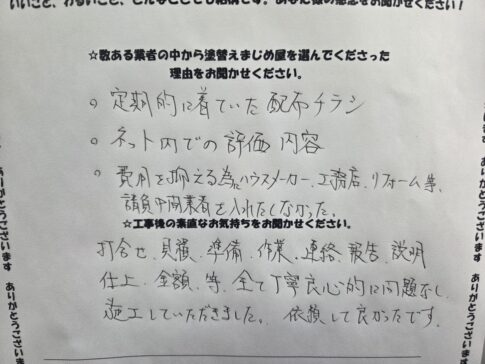 いいこと、わるいこと、どんなことでも結構です。あなた様の感想をお聞かせください!
☆数ある業者の中から塗替えまじめ屋を選んでくださった
理由をお聞かせください。
○ 定期的に着ていた配布チラシ
○ ネット内での評価内容
○ 費用を抑える為、ハウスメーカー、工務店、リフォーム等、
請負中間業者を入れたくなかった。
☆工事後の素直なお気持ちをお聞かせください。
打合せ、見積、準備、作業、連絡、報告、説明
仕上、金額、等、全て丁寧良心的に問題なし、
施工していただきました。依頼して良かったです。
ありがとうございます ありがとうございます
ありがとうございます ありがとうございます